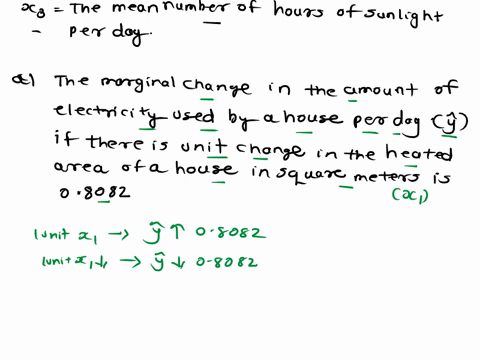 x3 = The mean number of hours of sunlight
- per day.
a) The marginal change in the amount of
electricity used by a house per day (ŷ)
if there is unit change in the heated
area of a house in square meters is
0.8082 (x1)
1unit x1 → ŷ ↑ 0.8082
1unit x1↓ → ŷ ↓ 0.8082